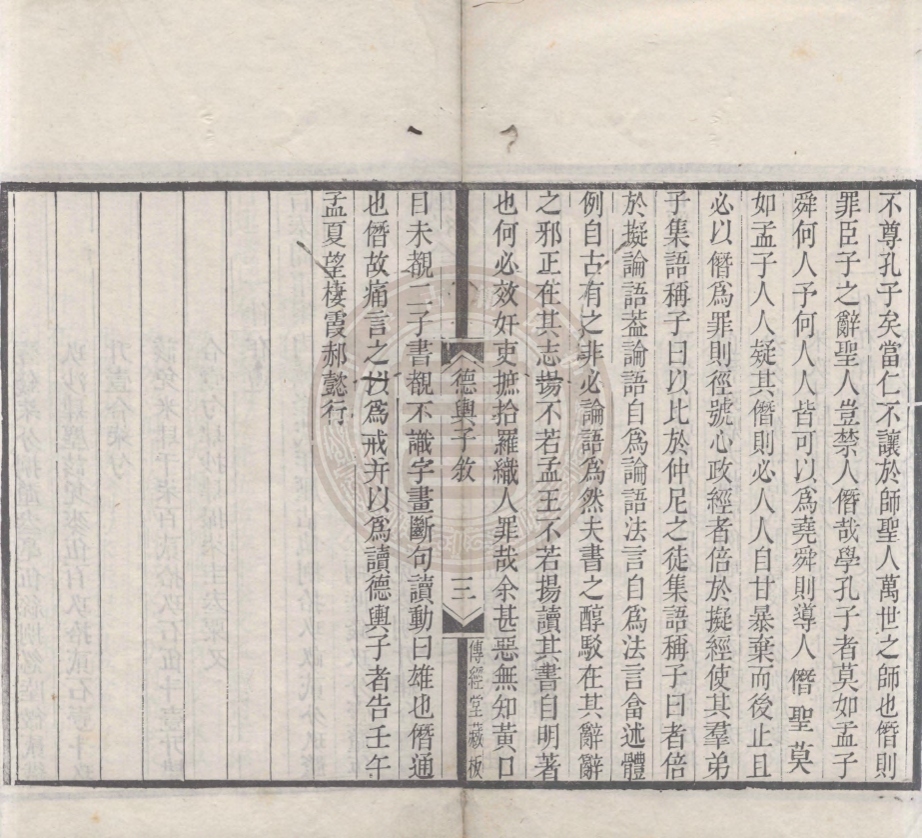 不尊孔子矣當仁不讓於師聖人萬世之師也僭則
罪臣子之辭聖人豈禁人僭哉學孔子者莫如孟子
舜何人予何人人皆可以爲堯舜則導人僭聖莫
如孟子人人疑其僭則必人人自甘暴棄而後止且
必以僭爲罪則徑號心政經者倍於擬經使其羣弟
子集語稱子曰以比於仲尼之徒集語稱子曰者倍
於擬論語葢論語自爲論語法言自爲法言畣述體
例自古有之非必論語爲然夫書之醇駁在其辭辭
之邪正在其志揚不若孟王不若揚讀其書自明著
也何必效奸吏摭拾羅織人罪哉余甚惡無知黃口
德輿子敘
三
傳經堂藏板
曰未覩二子書覩不識字畫斷句讀動曰雄也僭通
也僭故痛言之以爲戒并以爲讀德輿子者告壬午
孟夏望棲霞郝懿行